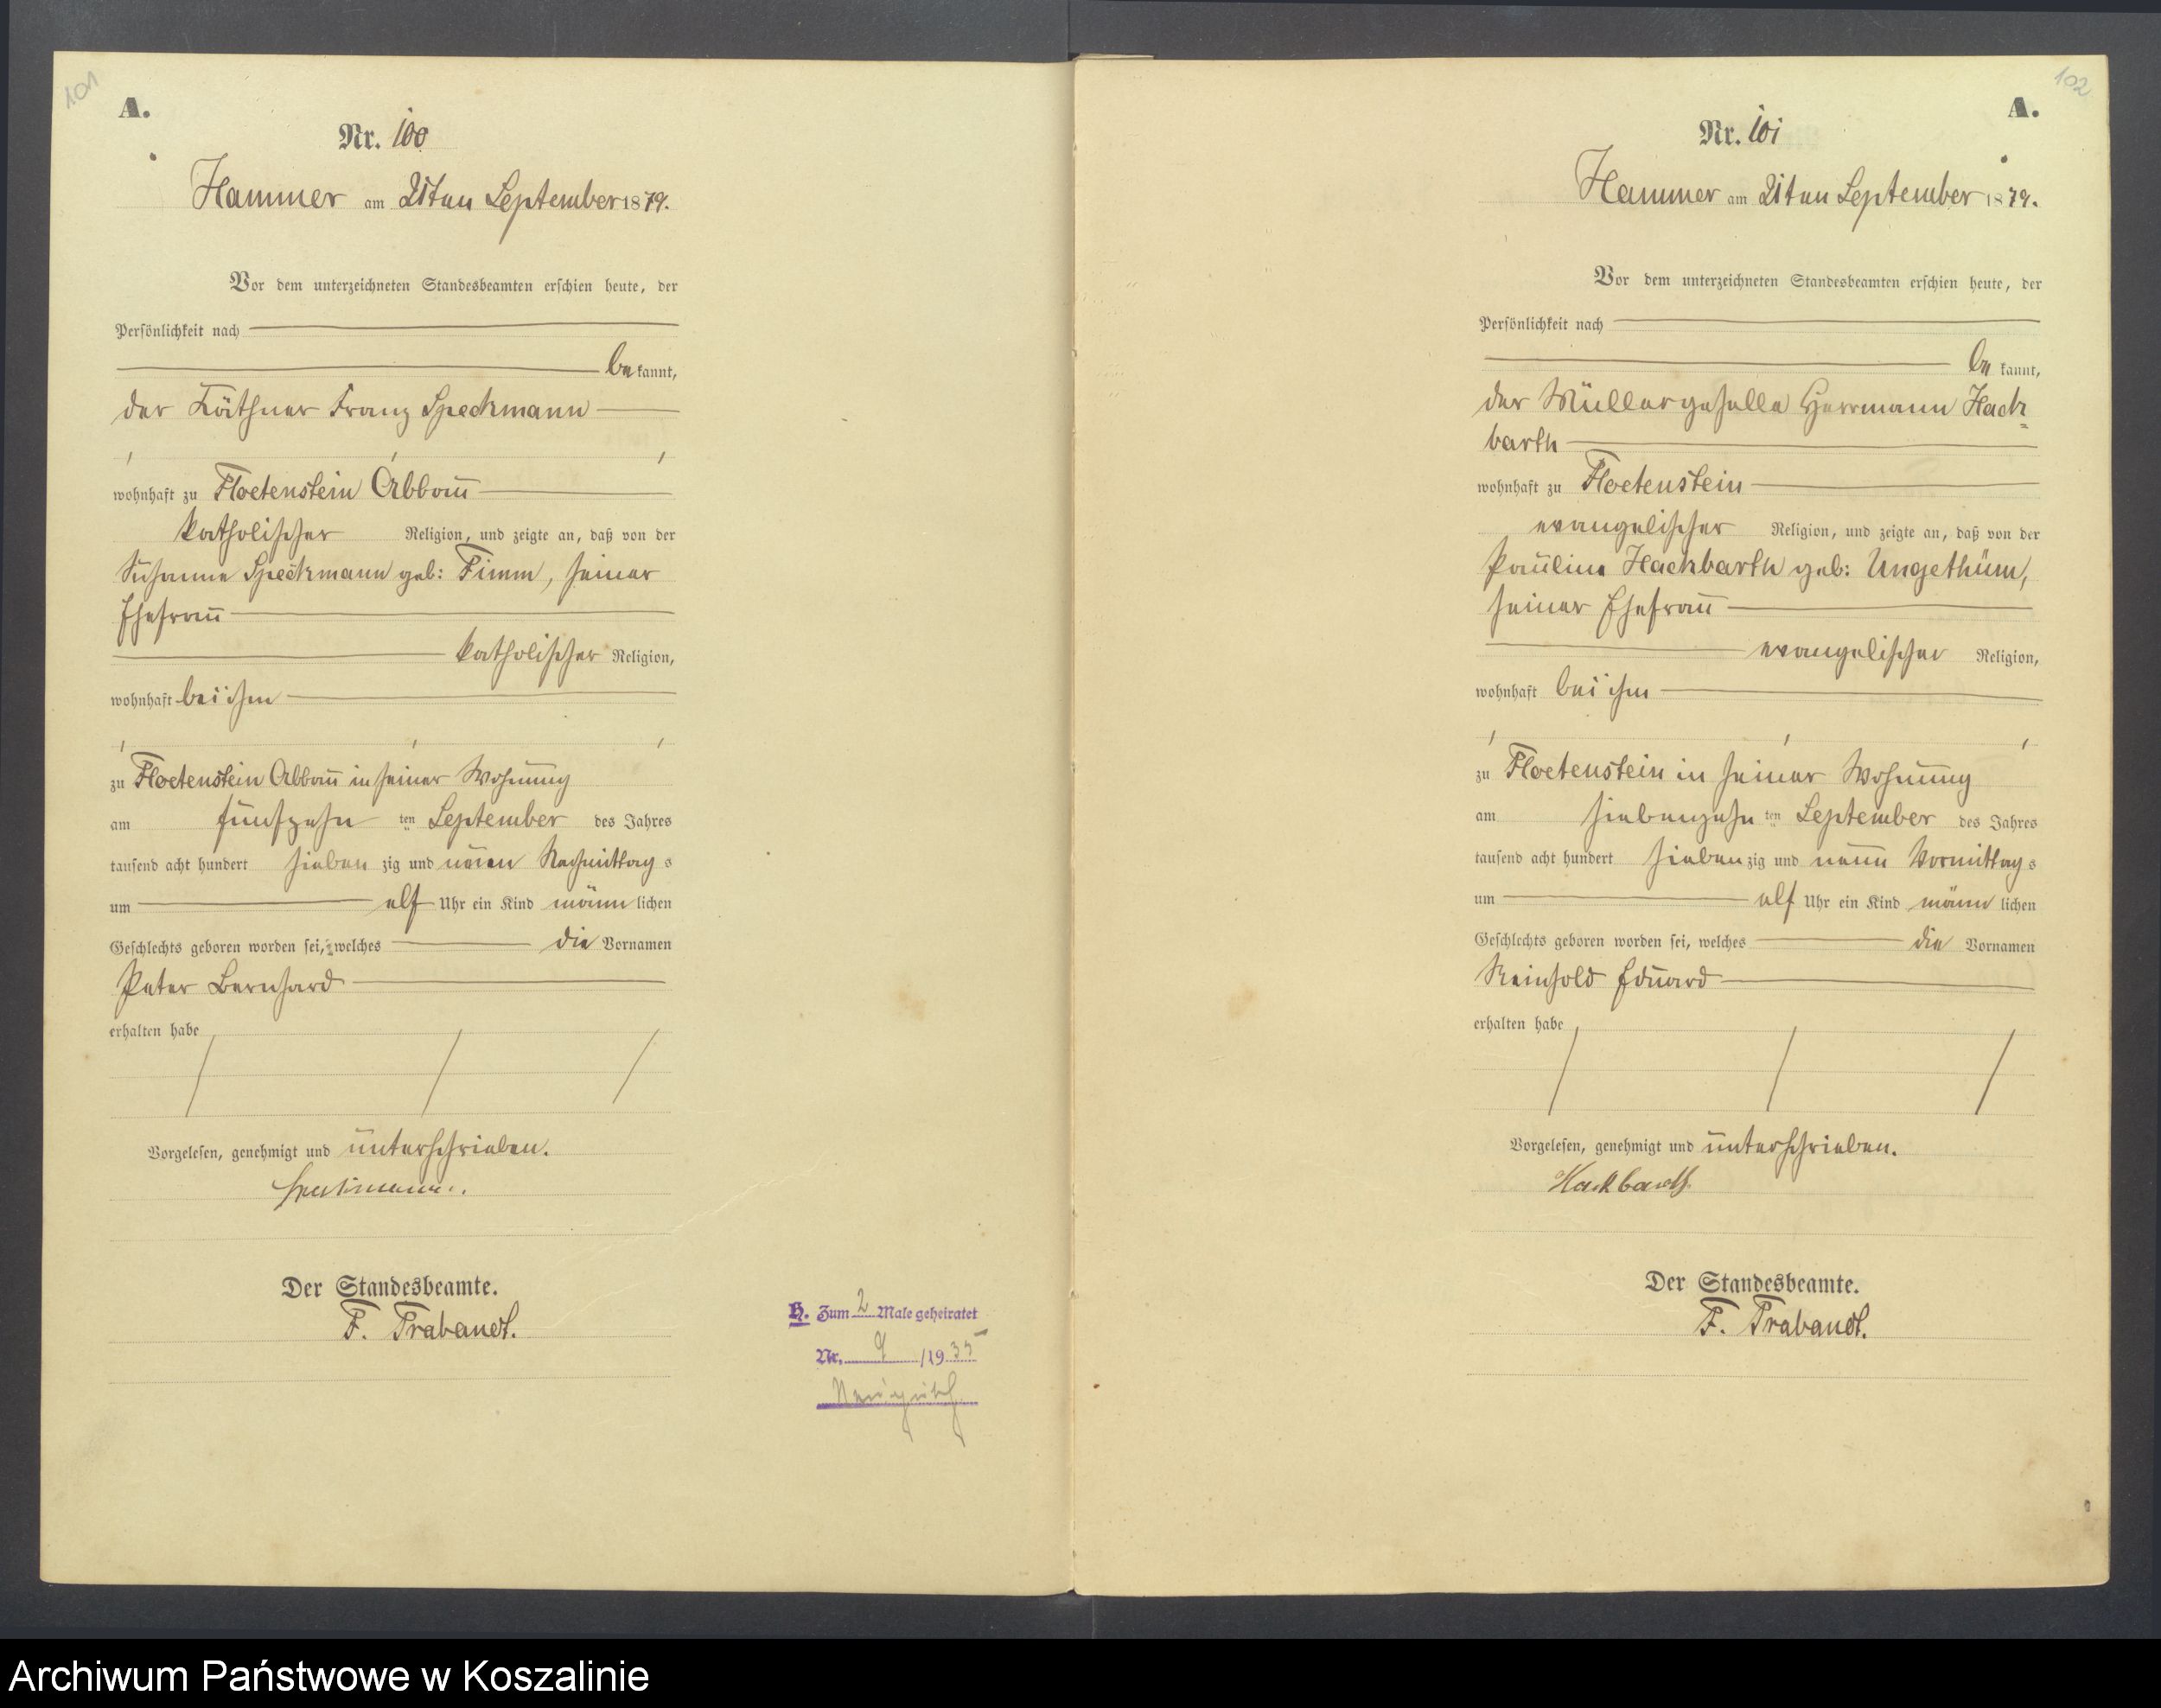 101
A.
Nr. 100
Hammer am 21ten September 1879.
Vor dem unterzeichneten Standesbeamten erschien heute, der
Persönlichkeit nach
bekannt,
der Käthner Franz Speckmann
wohnhaft zu Floetenstein Abbau
katholischer Religion, und zeigte an, daß von der
Susanna Speckmann geb: Timm, seiner
Ehefrau
katholischer Religion,
wohnhaft bei ihm
zu Floetenstein Abbau in seiner Wohnung
am fünfzehn ten September des Jahres
tausend acht hundert sieben zig und neun Nachmittags
um elf Uhr ein Kind männlichen
Geschlechts geboren worden sei, welches die Vornamen
Peter Bernhard
erhalten habe
Vorgelesen, genehmigt und unterschrieben.
Speckmann.
Der Standesbeamte.
F. Trabandt.
H. Zum 2 Male geheiratet
Nr. 9 /1935
102
A.
Nr. 101
Hammer am 21ten September 1879.
Vor dem unterzeichneten Standesbeamten erschien heute, der
Persönlichkeit nach
bekannt,
der Müllergeselle Herrmann Hack=
barth
wohnhaft zu Floetenstein
evangelischer Religion, und zeigte an, daß von der
Pauline Hackbarth geb: Ungethüm,
seiner Ehefrau
evangelischer Religion,
wohnhaft bei ihm
zu Floetenstein in seiner Wohnung
am siebenzehn ten September des Jahres
tausend acht hundert sieben zig und neun Vormittags
um elf Uhr ein Kind männlichen
Geschlechts geboren worden sei, welches die Vornamen
Reinhold Eduard
erhalten habe
Vorgelesen, genehmigt und unterschrieben.
Hackbarth
Der Standesbeamte.
F. Trabandt.
Archiwum Państwowe w Koszalinie